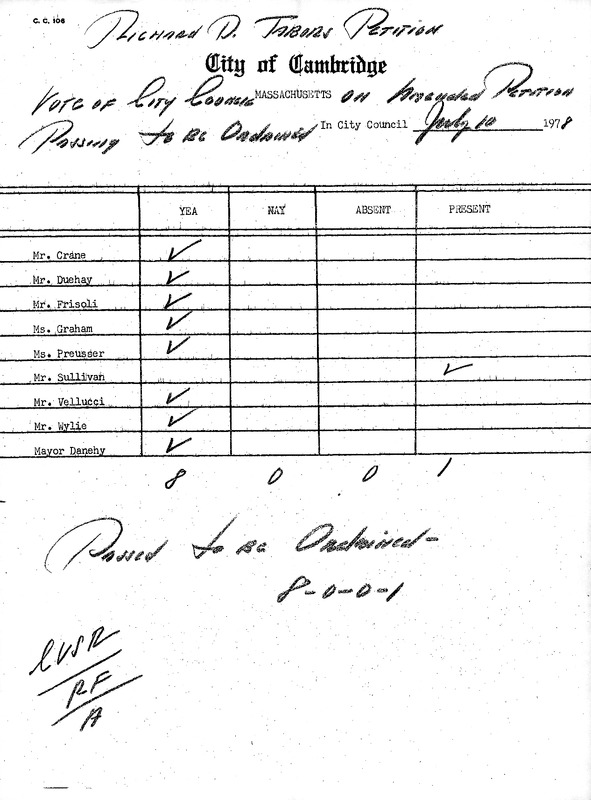 C. C. 106
RICHARD D. TABORS PETITION
City of Cambridge
VOTE OF City Council MASSACHUSETTS ON Amended PETITION
Passing to be Ordained In City Council July 10 1978
YEA NAY ABSENT PRESENT
Mr. Crane ✓
Mr. Duehay ✓
Mr. Frisoli ✓
Ms. Graham ✓
Ms. Preusser ✓
Mr. Sullivan ✓
Mr. Vellucci ✓
Mr. Wylie ✓
Mayor Danehy ✓
8 0 0 1
Passed to be Ordained-
8-0-0-1
CVSR
RF
A